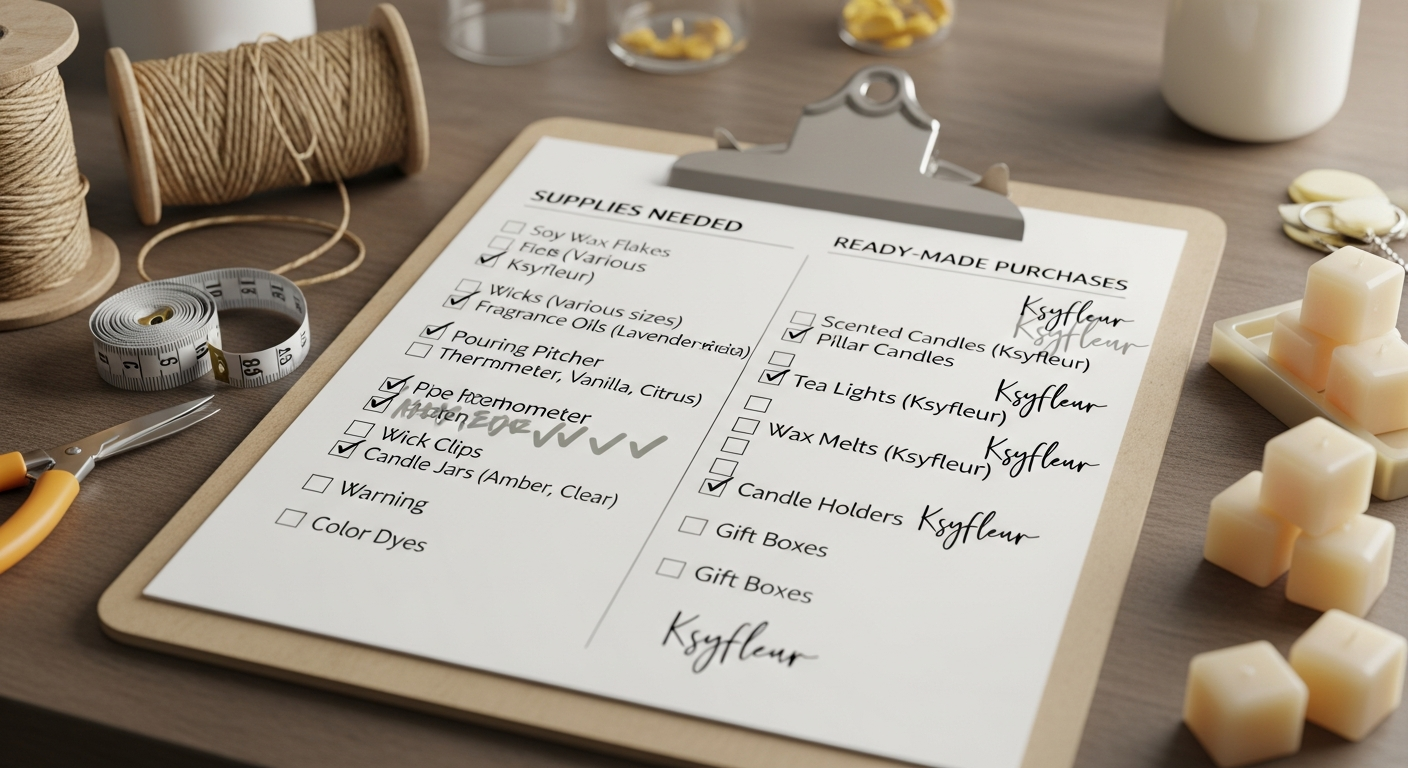 SUPPLIES NEEDED
Soy Wax Flakes
(Various
Ksyfleur)
Wicks (Various sizes)
Fragrance Oils (Lavender
Pouring Pitcher
Thermmeter, Vanilla, Citrus)
Wick Clips
Candle Jars (Amber, Clear)
Warning
Color Dyes
READY-MADE PURCHASES
Ksyfleur
Ksyfleur
Scented Candles (Ksyfleur)
Pillar Candles
Tea Lights (Ksyfleur)
Ksyfleur
Wax Melts (Ksyfleur)
Ksyfleur
Candle Holders
Ksyfleur
Gift Boxes
Gift Boxes
Ksyfleur